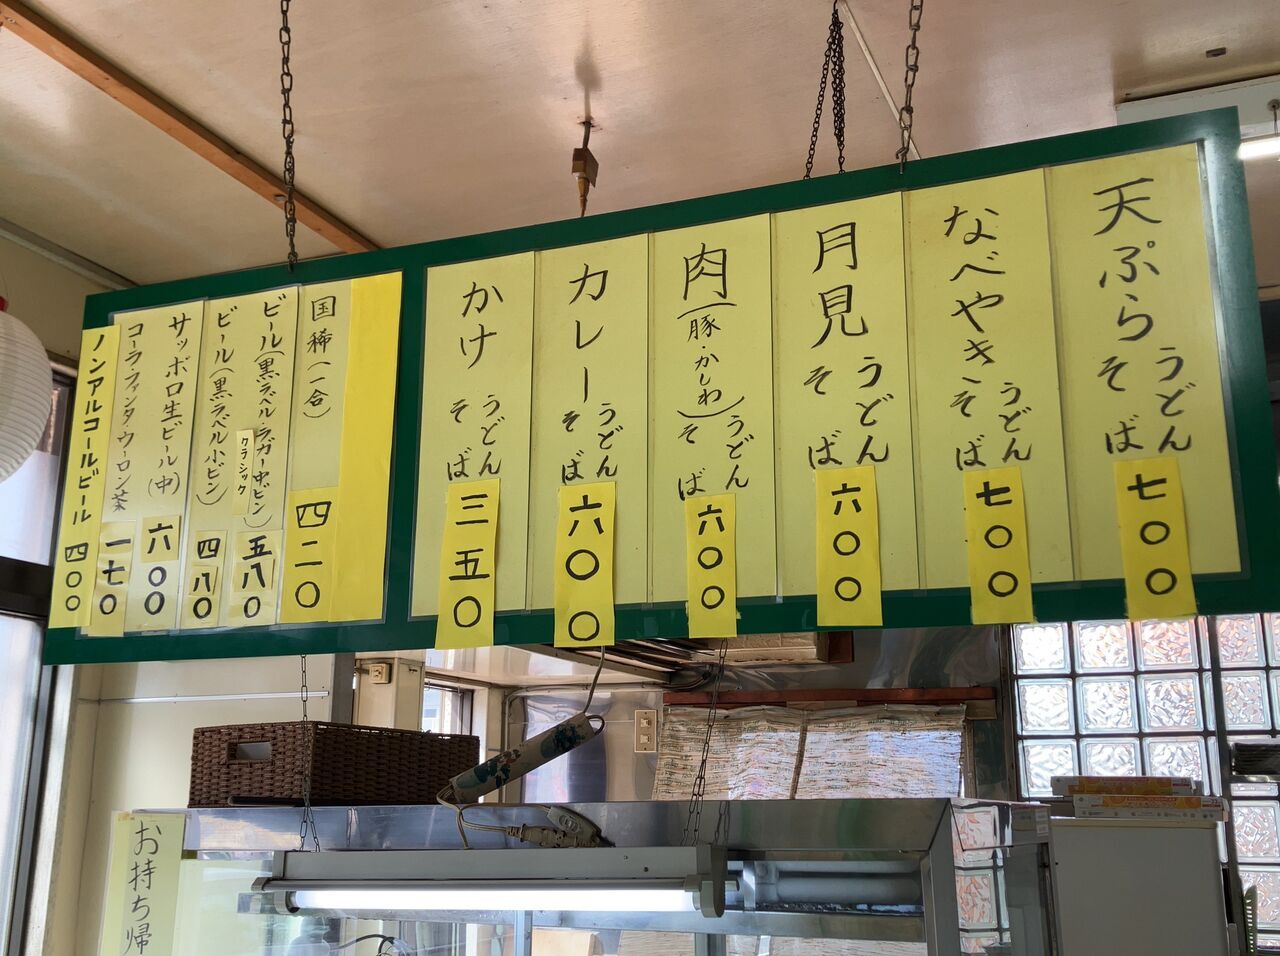 天ぷら うどん そば 七〇〇
なべやき うどん そば 七〇〇
月見 うどん そば 六〇〇
肉(豚・かしわ) うどん そば 六〇〇
カレー うどん そば 六〇〇
かけ うどん そば 三五〇
国稀(一合) 四二〇
ビール(黒ラベル・ラガー中ビン) クラシック 五八〇
ビール(黒ラベル小ビン) 四八〇
サッポロ生ビール(中) 六〇〇
コーラ・ファンタ・ウーロン茶 一七〇
ノンアルコールビール 四〇〇
お持ち帰